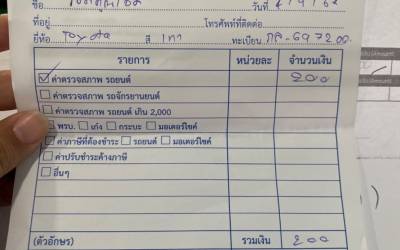 ชื่อ วันที่
ที่อยู่ โทรศัพท์ที่ติดต่อ
ยี่ห้อ Toyota สี เทา ทะเบียน
รายการ หน่วยละ จำนวนเงิน
☑ ค่าตรวจสภาพ รถยนต์ 200
☐ ค่าตรวจสภาพ รถจักรยานยนต์
☐ ค่าตรวจสภาพ รถยนต์ เกิน 2,000
☐ พรบ. ☐ เก๋ง ☐ กระบะ ☐ มอเตอร์ไซค์
☐ ค่าภาษีที่ต้องชำระ ☐ รถยนต์ ☐ มอเตอร์ไซค์
☐ ค่าปรับชำระค้างภาษี
☐ อื่นๆ
(ตัวอักษร) รวมเงิน 200